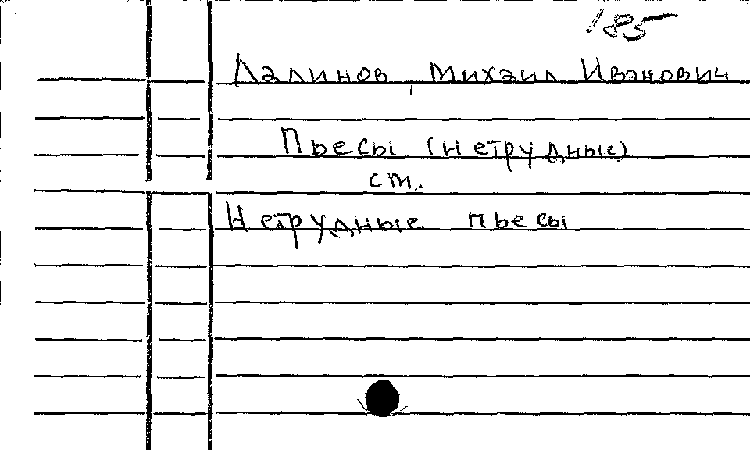 185
Далинов, Михаил Иванович
Пьесы (нетрудные)
см.
Нетрудные пьесы